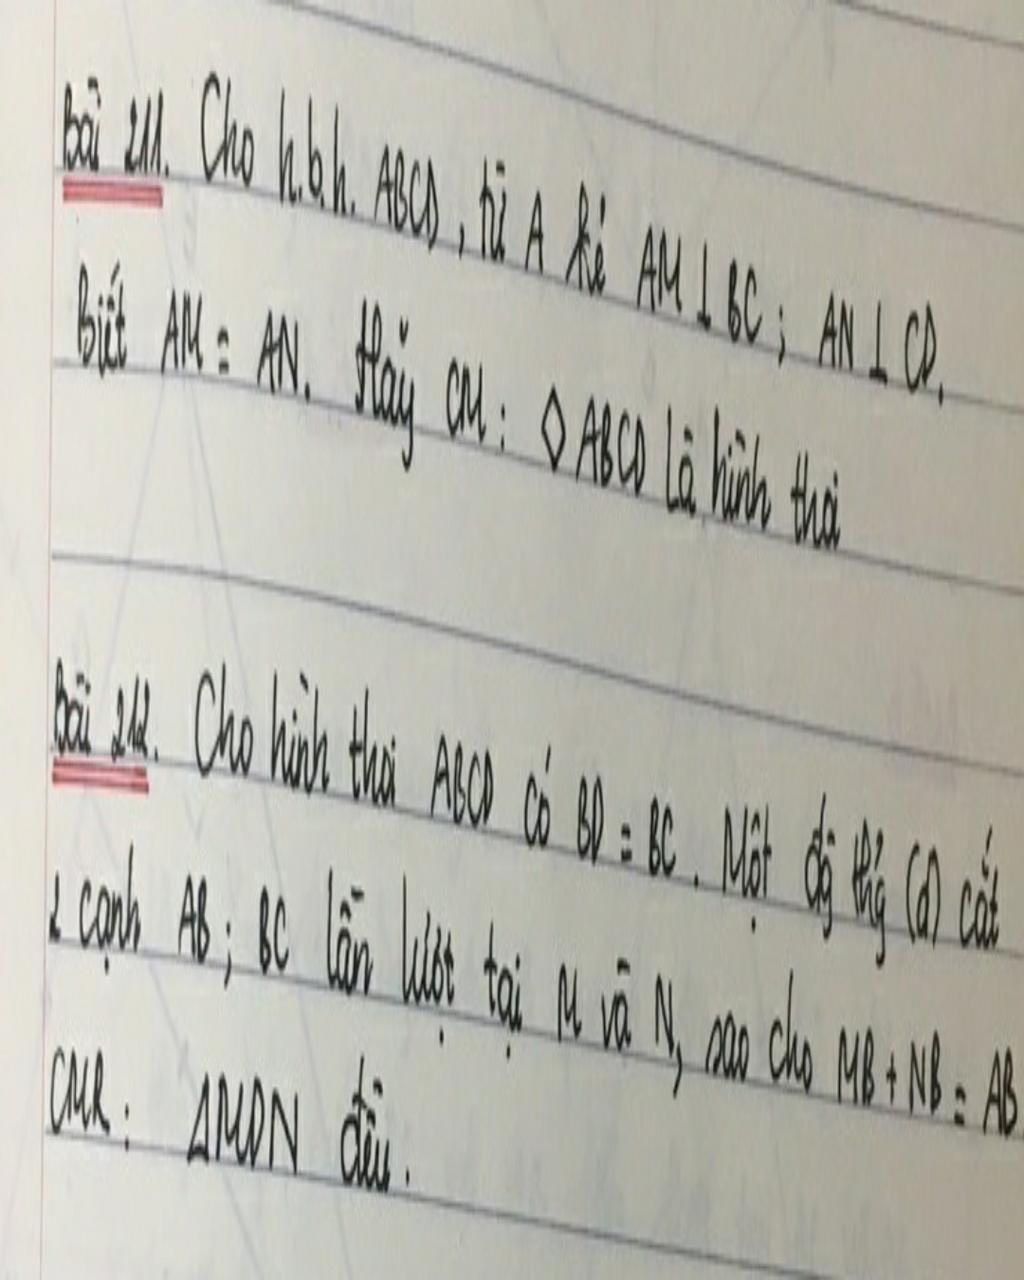 Bài 211. Cho h.b.h. ABCD, từ A kẻ AM ⊥ BC; AN ⊥ CD.
Biết AM = AN. Hãy CM: ◇ABCD là hình thoi
Bài 212. Cho hình thoi ABCD có BD = BC. Một đg thg (d) cắt
2 cạnh AB; BC lần lượt tại M và N, sao cho MB + NB = AB
CMR: ΔMDN đều.